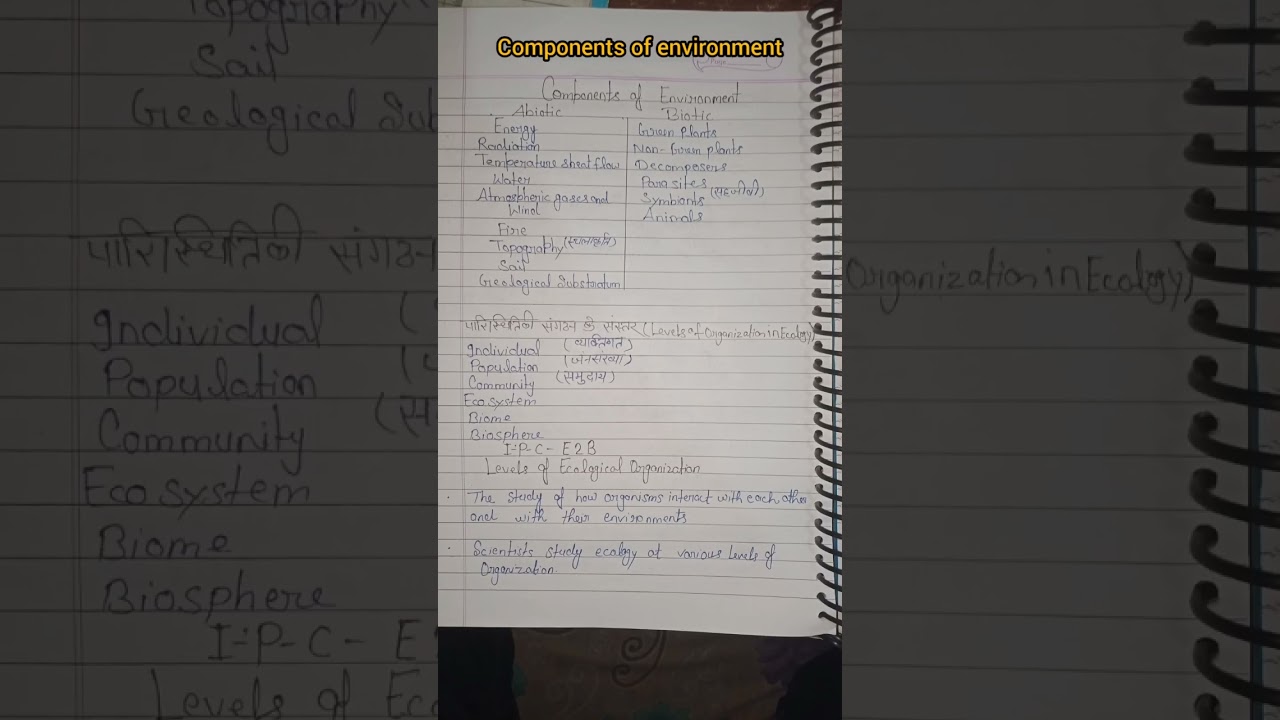 Components of environment
Components of Environment
Abiotic Biotic
Energy Green Plants
Radiation Non-Green plants
Temperature sheat flow Decomposers
Water Parasites
Atmospheric gases and Symbionts (सहजीवी)
Wind Animals
Fire
Topography (स्थलाकृति)
Soil
Geological Substratum
पारिस्थितिकी संगठन के संस्तर (Levels of Organization in Ecology)
Individual (व्यक्तिगत)
Population (जनसंख्या)
Community (समुदाय)
Ecosystem
Biome
Biosphere
I-P-C- E2B
Levels of Ecological Organization
· The study of how organisms interact with each other
and with their environments
· Scientists study ecology at various levels of
Organization.